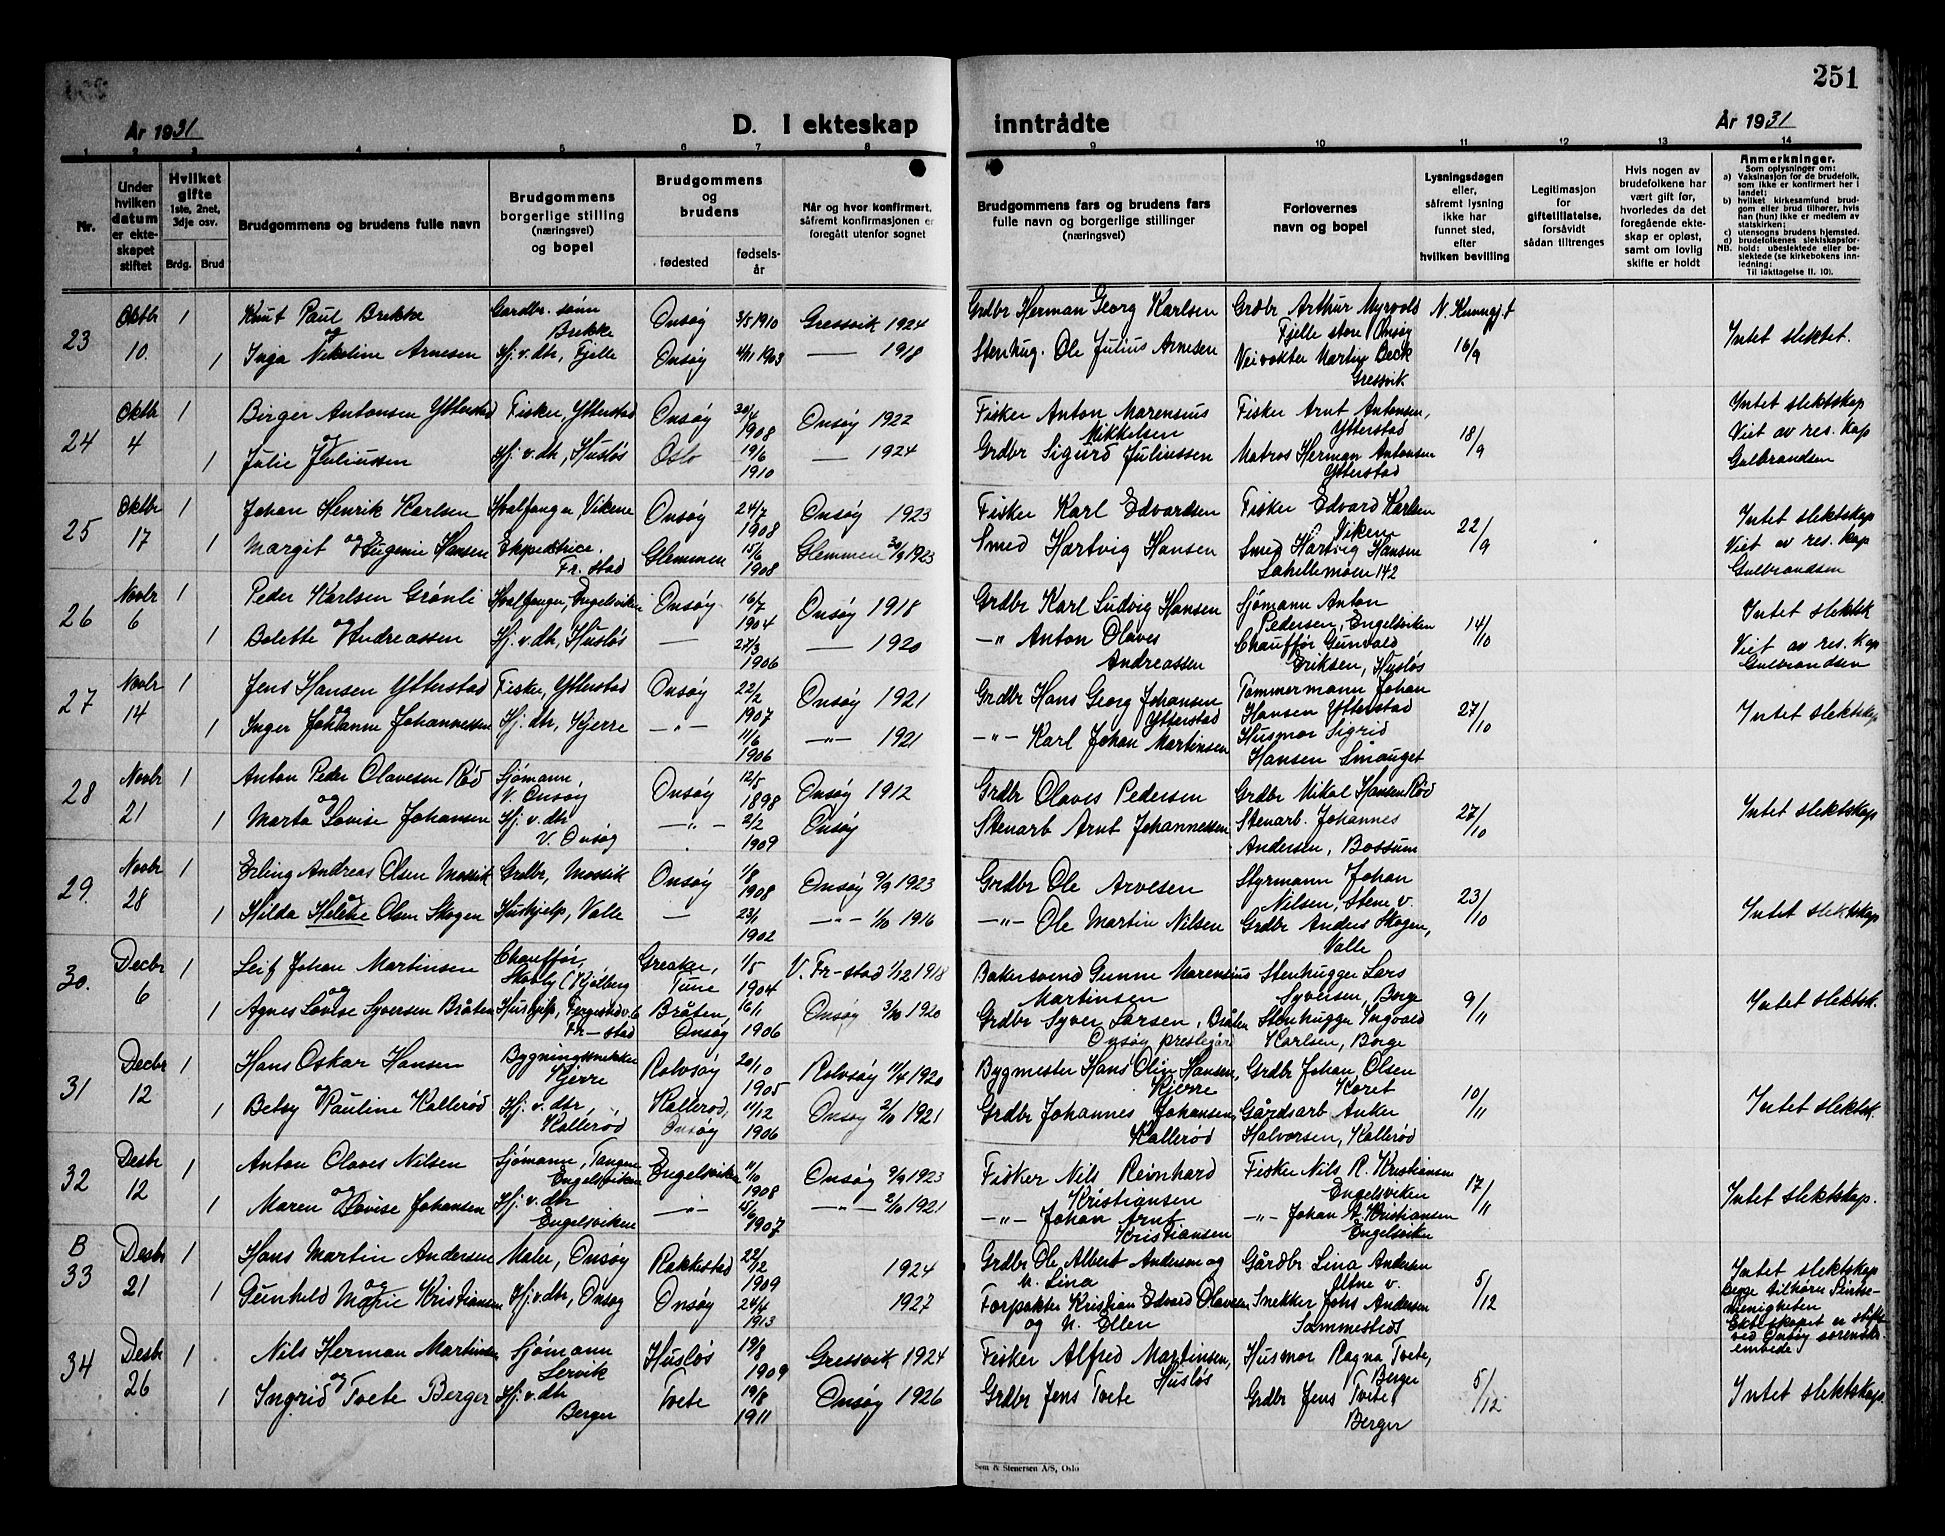 251
År 1931
D. I ekteskap inntrådte
År 1931
1 2 3 4 5 6 7 8 9 10 11 12 13 14
Nr.
Under hvilken datum er ekteskapet stiftet
Hvilket gifte 1ste, 2net, 3dje osv.
Brdg. Brud
Brudgommens og brudens fulle navn
Brudgommens borgerlige stilling (næringsvei) og bopel
Brudgommens og brudens
fødested
fødselsår
Når og hvor konfirmert, såfremt konfirmasjonen er foregått utenfor sognet
Brudgommens fars og brudens fars fulle navn og borgerlige stillinger (næringsvei)
Forlovernes navn og bopel
Lysningsdagen eller, såfremt lysning ikke har funnet sted, efter hvilken bevilling
Legitimasjon for giftetillatelse, forsåvidt sådan tiltrenges
Hvis nogen av brudefolkene har vært gift før, hvorledes da det foregående ekteskap er opløst, samt om lovlig skifte er holdt
Anmerkninger.
Som oplysninger om:
a) Vaksinasjon for de brudefolk, som ikke er konfirmert her i landet;
b) hvilket kirkesamfund brudgom eller brud tilhører, hvis han (hun) ikke er medlem av statskirken;
c) utensogns brudens hjemsted.
d) brudefolkenes slektskapsforhold: ubeslektede eller beslektede (se kirkebokens innledning:
NB. Til iakttagelse II. 10).
23 Oktbr 10 1 Knut Paul Brekke Gardbr. sønn Brekke Onsøy 3/5 1910 Gressvik 1924 Grdbr Herman Georg Karlsen Grdbr Arthur Myrvold Fjelle store Onsøy N. Kunngj. f 16/9 Intet slektet.
og 1 Inga Nikoline Arnesen Hj. v. dtr, Fjelle Onsøy 4/11 1903 — 1918 Stenhug. Ole Julius Arnesen Veivokter Martin Beck Gressvik
24 Oktbr 4 1 Birger Antonsen Ytterstad Fisker, Ytterstad Onsøy 30/4 1908 Onsøy 1922 Fisker Anton Marensius Mikkelsen Fisker Arnt Antonsen, Ytterstad 18/9 Intet slektskap Viet av res. kap Gulbrandsen
og 1 Julie Juliussen Hj. v. dtr, Husløs Oslo 19/6 1910 — 1924 Grdbr Sigurd Juliussen Matros Herman Antonsen Ytterstad
25 Oktbr 17 1 Johan Henrik Karlsen Hvalfanger, Vikene Onsøy 24/7 1908 Onsøy 1923 Fisker Karl Edvardsen Fisker Edvard Karlsen Viken 22/9 Intet slektskap Viet av res. kap Gulbrandsen
og 1 Margit Eugenie Hansen Ekspeditrice. Fr. stad Glemmen 15/6 1908 Glemmen 30/9 1923 Smed Hartvig Hansen Smed Hartvig Hansen Lahellemoen 142
26 Novbr 6 1 Peder Karlsen Grønli Hvalfanger, Engelsviken Onsøy 16/7 1904 Onsøy 1918 Grdbr Karl Ludvig Hansen Sjømann Anton Pedersen, Engelsviken 14/10 Intet slektsk Viet av res. kap Gulbrandsen
og 1 Bolette Andreassen Hj. v. dtr, Husløs — 27/3 1906 — 1920 -"- Anton Olaves Andreassen Chauffør Gunvald Eriksen, Husløs
27 Novbr 14 1 Jens Hansen Ytterstad Fiske, Ytterstad Onsøy 22/2 1907 Onsøy 1921 Grdbr Hans Georg Johansen Ytterstad Tømmermann Johan Hansen Ytterstad 27/10 Intet slektskap
og 1 Inger Johanne Johannessen Hj. dtr, Kjerre -"- 11/6 1906 -"- 1921 -"- Karl Johan Martinsen Husmor Sigrid Hansen Smauget
28 Novbr 21 1 Anton Peder Olavesen Rød Sjømann, V. Onsøy Onsøy 12/5 1898 Onsøy 1912 Grdbr Olaves Pedersen Grdbr Mikal Hansen Rød 27/10 Intet slektskap
og 1 Marta Lovise Johansen Hj. v. dtr V. Onsøy -"- 2/2 1909 Onsøy Stenarb Arnt Johannessen Stenarb. Johannes Andersen, Bossum
29. Novbr 28 1 Erling Andreas Olsen Mossik Grdbr, Mossik Onsøy 1/8 1908 Onsøy 9/9 1923 Grdbr Ole Arvesen Styrmann Johan Nilsen, Stene v. 23/10 Intet slektskap
og 1 Hilda Helene Olsen Skogen Hushjelp, Valle — 23/1 1902 -"- 1/10 1916 -"- Ole Martin Nilsen Grdbr Anders Skogen, Valle
30. Decbr 6 1 Leif Johan Martinsen Chauffør, Skobly (Kjølberg Greaker, Tune 1/5 1904 V. Fr-stad 1/12 1918 Bakersvend Gunne Marensius Martinsen Stenhugger Lars Syversen, Borge 9/11 Intet slektsk.
og 1 Agnes Lovise Syversen Bråten Hushjelp, Fr-stad Bråten, Onsøy 16/1 1906 Onsøy 3/10 1920 Grdbr Syver Larsen, Bråten Onsøy prestegård Stenhugger Ingvald Karlsen, Borge
31 Decbr 12 1 Hans Oskar Hansen Bygningssnekker Kjerre Rolvsøy 20/10 1905 Rolvsøy 11/4 1920 Bygmester Hans Olin Hansen, Kjerre Grdbr Johan Olsen Koret 10/11 Intet slektsk.
og 1 Betsy Pauline Kallerød Hj. v. dtr, Kallerød Kallerød, Onsøy 11/12 1906 Onsøy 2/10 1921 Grdbr Johannes Johansen Kallerød Gårdsarb Anker Halvorsen, Kallerød
32 Desbr 12 1 Anton Olaves Nilsen Sjømann, Tangen Engelsviken Engelsviken 11/10 1908 Onsøy 9/9 1923 Fisker Nils Reinhard Kristiansen Fisker Nils R. Kristiansen Engelsviken 17/11 Intet slektskap.
og 1 Maren Lovise Johansen Hj. v. dtr Engelsviken -"- 15/6 1907 -"- 2/10 1921 -"- Johan Arnt Kristiansen -"- Johan A Kristiansen Engelsviken
B 33 Desbr 21 1 Hans Martin Andersen Maler, Onsøy Rakkestad 22/12 1909 1924 Grdbr Ole Albert Andersen og h. Lina Gårdbr Lina Andersen Østne v. 5/12 Intet slektskap Begge tilhører Pinsemenigheten Ekteskapet er stiftet ved Onsøy sorenskr. embede)
og 1 Gunhild Marie Kristiansen Hj. v. dtr, Onsøy Onsøy 24/4 1913 1927 Forpakter Kristian Edvard Olavesen og h. Ellen Snekker Johs Andersen Sammesteds
34 Desbr 26 1 Nils Herman Martinsen Sjømann Lervik Husløs 19/8 1909 Gressvik 1924 Fisker Alfred Martinsen, Husløs Husmor Ragna Tvete, Berger 5/12 Intet slektskap.
og 1 Ingrid Tvete Berger Hj. v. dtr Berger Tvete 19/8 1911 Onsøy 1926 Grdbr Jens Tvete Grdbr Jens Tvete, Berger
Sem & Stenersen A/S, Oslo